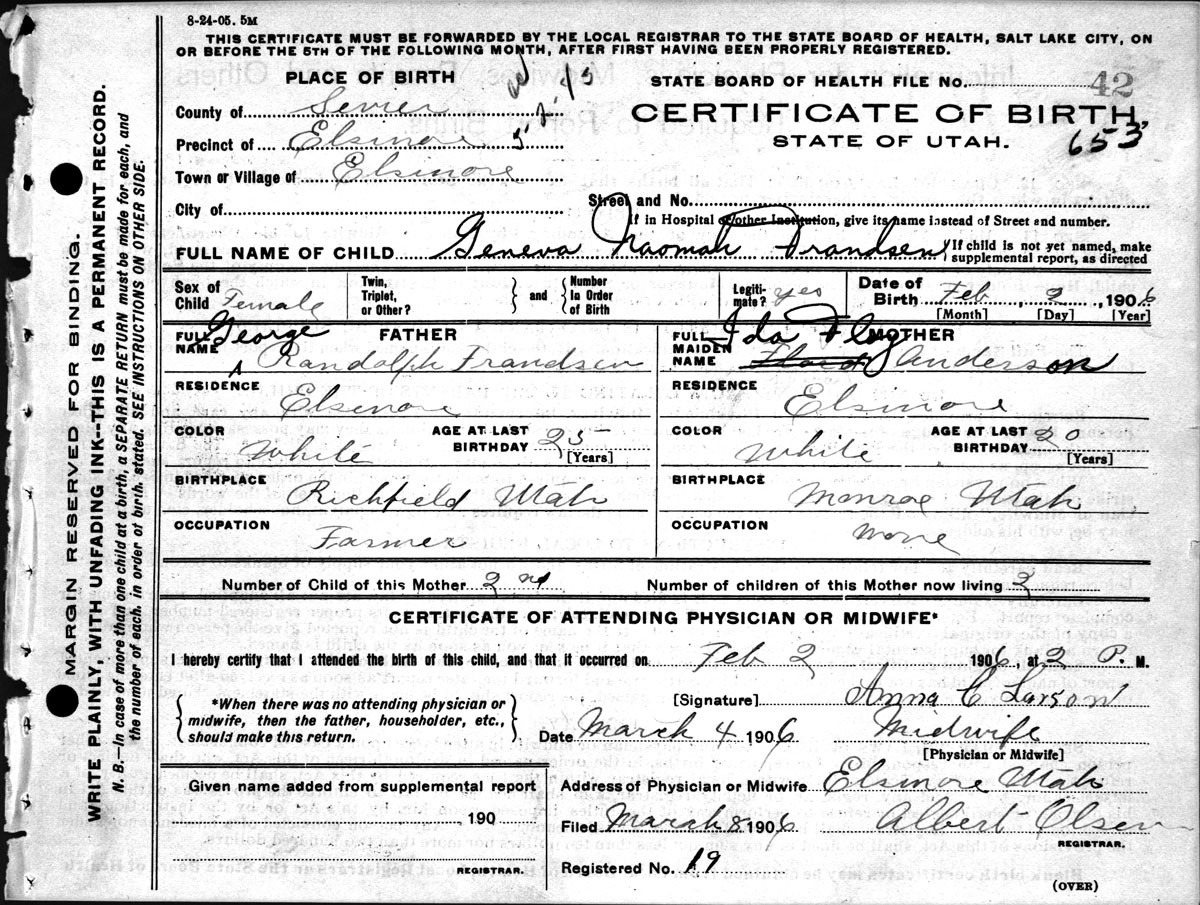 8-24-05. 5M
THIS CERTIFICATE MUST BE FORWARDED BY THE LOCAL REGISTRAR TO THE STATE BOARD OF HEALTH, SALT LAKE CITY, ON
OR BEFORE THE 5TH OF THE FOLLOWING MONTH, AFTER FIRST HAVING BEEN PROPERLY REGISTERED.
MARGIN RESERVED FOR BINDING.
WRITE PLAINLY, WITH UNFADING INK--THIS IS A PERMANENT RECORD.
N. B.—In case of more than one child at a birth, a SEPARATE RETURN must be made for each, and
the number of each, in order of birth, stated. SEE INSTRUCTIONS ON OTHER SIDE.
PLACE OF BIRTH
County of Sevier
Precinct of Elsinore
Town or Village of Elsinore
City of
STATE BOARD OF HEALTH FILE NO. 42
CERTIFICATE OF BIRTH,
STATE OF UTAH. 653
Street and No.
If in Hospital or other Institution, give its name instead of Street and number.
FULL NAME OF CHILD Geneva Naomah Frandsen
If child is not yet named, make
supplemental report, as directed
Sex of Child Female
Twin, Triplet, or Other?
and
Number In Order of Birth
Legiti-mate? yes
Date of Birth Feb, 2, 1906
[Month] [Day] [Year]
FATHER
FULL NAME George Randolph Frandsen
RESIDENCE
Elsinore
COLOR White
AGE AT LAST BIRTHDAY 25
[Years]
BIRTHPLACE
Richfield Utah
OCCUPATION
Farmer
MOTHER
FULL MAIDEN NAME Ida Floy Anderson
RESIDENCE
Elsinore
COLOR White
AGE AT LAST BIRTHDAY 20
[Years]
BIRTHPLACE
Monroe Utah
OCCUPATION
None
Number of Child of this Mother 2nd
Number of children of this Mother now living 2
CERTIFICATE OF ATTENDING PHYSICIAN OR MIDWIFE*
I hereby certify that I attended the birth of this child, and that it occurred on Feb 2 1906, at 2 P. M.
*When there was no attending physician or
midwife, then the father, householder, etc.,
should make this return.
[Signature] Anna C Larson
Date March 4 1906 Midwife
[Physician or Midwife]
Given name added from supplemental report
190
REGISTRAR.
Address of Physician or Midwife Elsinore Utah
Filed March 8 1906 Albert Olsen
REGISTRAR.
Registered No. 19
(OVER)